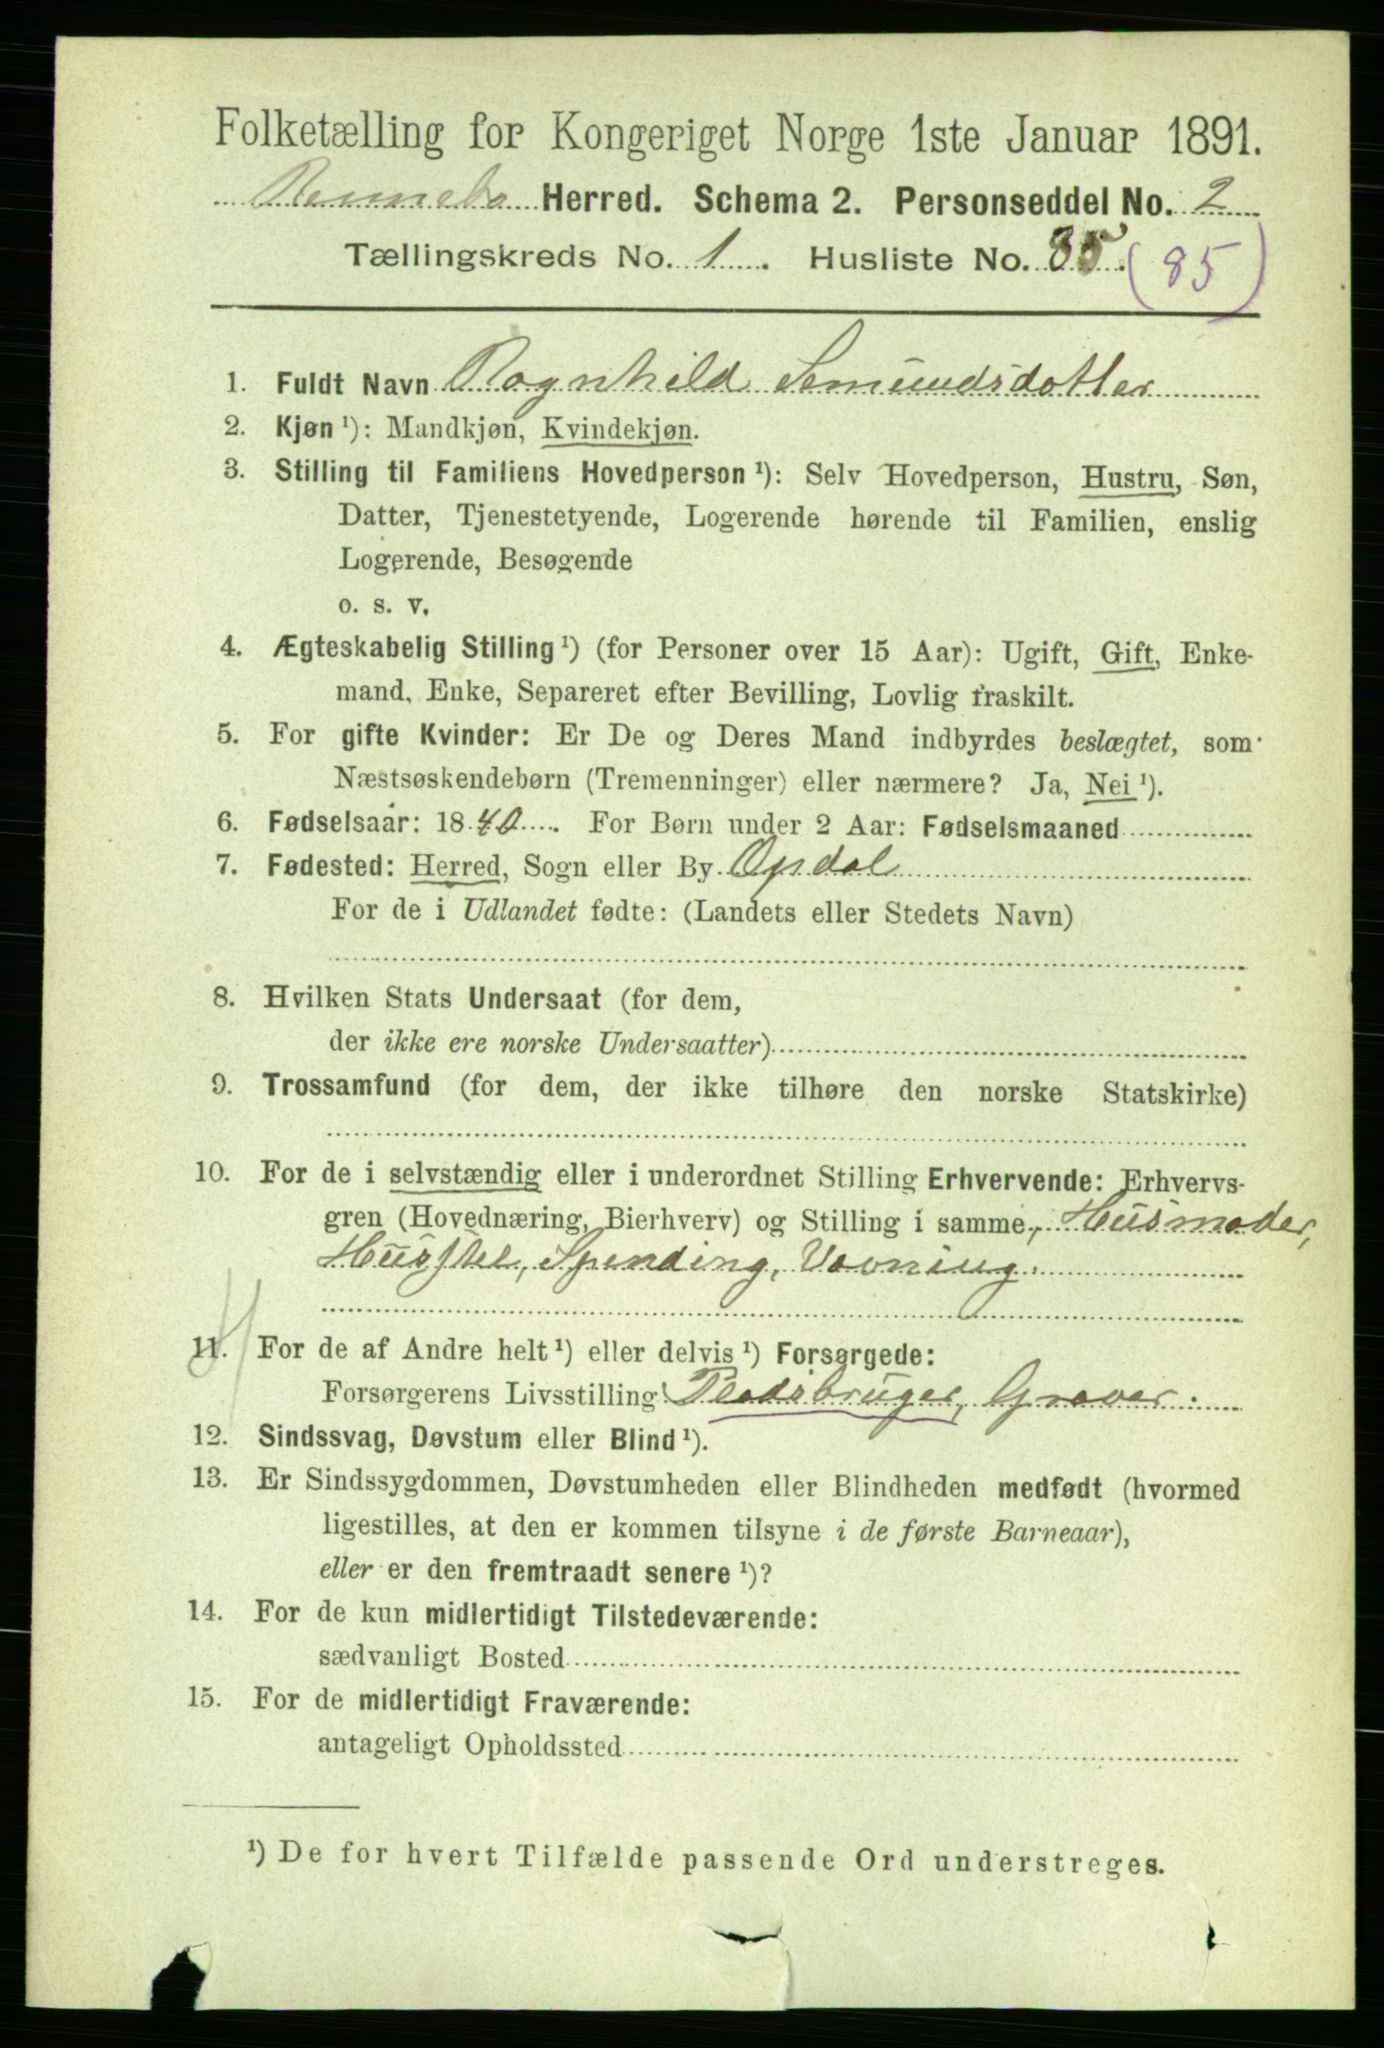 Folketælling for Kongeriget Norge 1ste Januar 1891.
Rennebo Herred. Schema 2. Personseddel No. 2
Tællingskreds No. 1. Husliste No. 85. (85)
1. Fuldt Navn Ragnhild Semundsdotter
2. Kjøn ¹): Mandkjøn, Kvindekjøn.
3. Stilling til Familiens Hovedperson ¹): Selv Hovedperson, Hustru, Søn,
Datter, Tjenestetyende, Logerende hørende til Familien, enslig
Logerende, Besøgende
o. s. v.
4. Ægteskabelig Stilling ¹) (for Personer over 15 Aar): Ugift, Gift, Enke-
mand, Enke, Separeret efter Bevilling, Lovlig fraskilt.
5. For gifte Kvinder: Er De og Deres Mand indbyrdes beslægtet, som
Næstsøskendebørn (Tremenninger) eller nærmere? Ja, Nei ¹).
6. Fødselsaar: 1840. For Børn under 2 Aar: Fødselsmaaned
7. Fødested: Herred, Sogn eller By Opdal
For de i Udlandet fødte: (Landets eller Stedets Navn)
8. Hvilken Stats Undersaat (for dem,
der ikke ere norske Undersaatter)
9. Trossamfund (for dem, der ikke tilhøre den norske Statskirke)
10. For de i selvstændig eller i underordnet Stilling Erhvervende: Erhvervs-
gren (Hovednæring, Bierhverv) og Stilling i samme, Husmoder,
Husstel, Spending, Vævning.
11. For de af Andre helt ¹) eller delvis ¹) Forsørgede:
Forsørgerens Livsstilling Pladsbruger, Graver.
12. Sindssvag, Døvstum eller Blind ¹).
13. Er Sindssygdommen, Døvstumheden eller Blindheden medfødt (hvormed
ligestilles, at den er kommen tilsyne i de første Barneaar),
eller er den fremtraadt senere ¹)?
14. For de kun midlertidigt Tilstedeværende:
sædvanligt Bosted
15. For de midlertidigt Fraværende:
antageligt Opholdssted
¹) De for hvert Tilfælde passende Ord understreges.